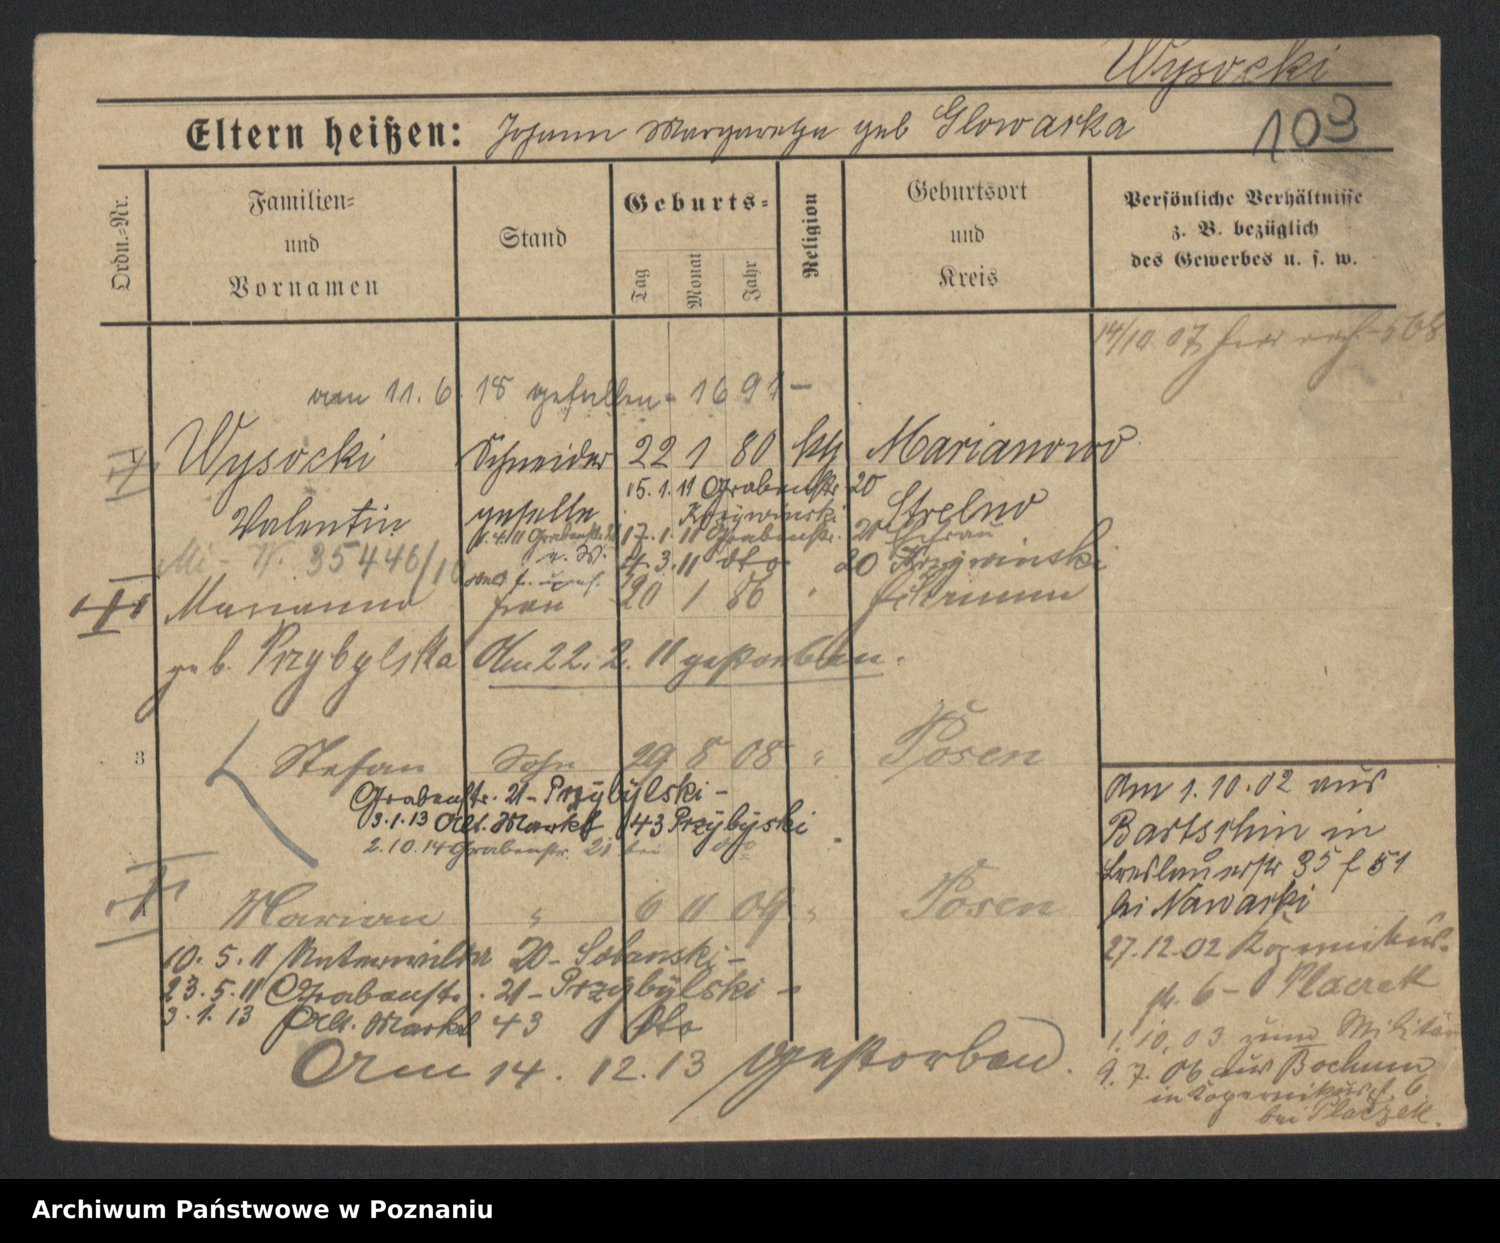 Wysocki
Eltern heißen: Johann Margaretha geb Glowaska
103
Ordn.-Nr.
Familien-
und
Vornamen
Stand
Geburts-
Tag
Monat
Jahr
Religion
Geburtsort
und
Kreis
Persönliche Verhältnisse
z. B. bezüglich
des Gewerbes u. s. w.
14/10. 07
am 11. 6. 18 gefallen - 1691 -
Wysocki Schneider 22 1 80 kth Marianowo
15. 1. 11 Grabenstr. 20
Valentin geselle Krzywinski Strelno
1. 4. 11 Grabenstr. 17. 1. 11 Grabenstr. 20 Ehefrau
4. 3. 11 dto 20 Krzywinski
35446/16
Marianna Frau 20 1 86 "
geb. Przybylska Am 22. 2. 11 gestorben.
3 Stefan Sohn 29 8 08 " Posen
Grabenstr. 21 - Przybylski -
3. 1. 13 Alt. Markt 43 Przybyski
2. 10. 14 Grabenstr. 21 bei dto
Marian " 6 11 09 " Posen
10. 5. 11 Unterwilda 20 - Sobanski -
23. 5. 11 Grabenstr. 21 - Przybylski -
3. 1. 13 Alt. Markt 43 dto
Am 14. 12. 13 gestorben.
Am 1. 10. 02 aus
Bartschin in
Breslauerstr 35 f 51
bei Nawaski
27. 12. 02 Kopernikus-
str. 6 - Placzek
1. 10. 03 zum Militär
9. 7. 06 aus Bochum
in Kopernikusst. 6
bei Placzek.
Archiwum Państwowe w Poznaniu